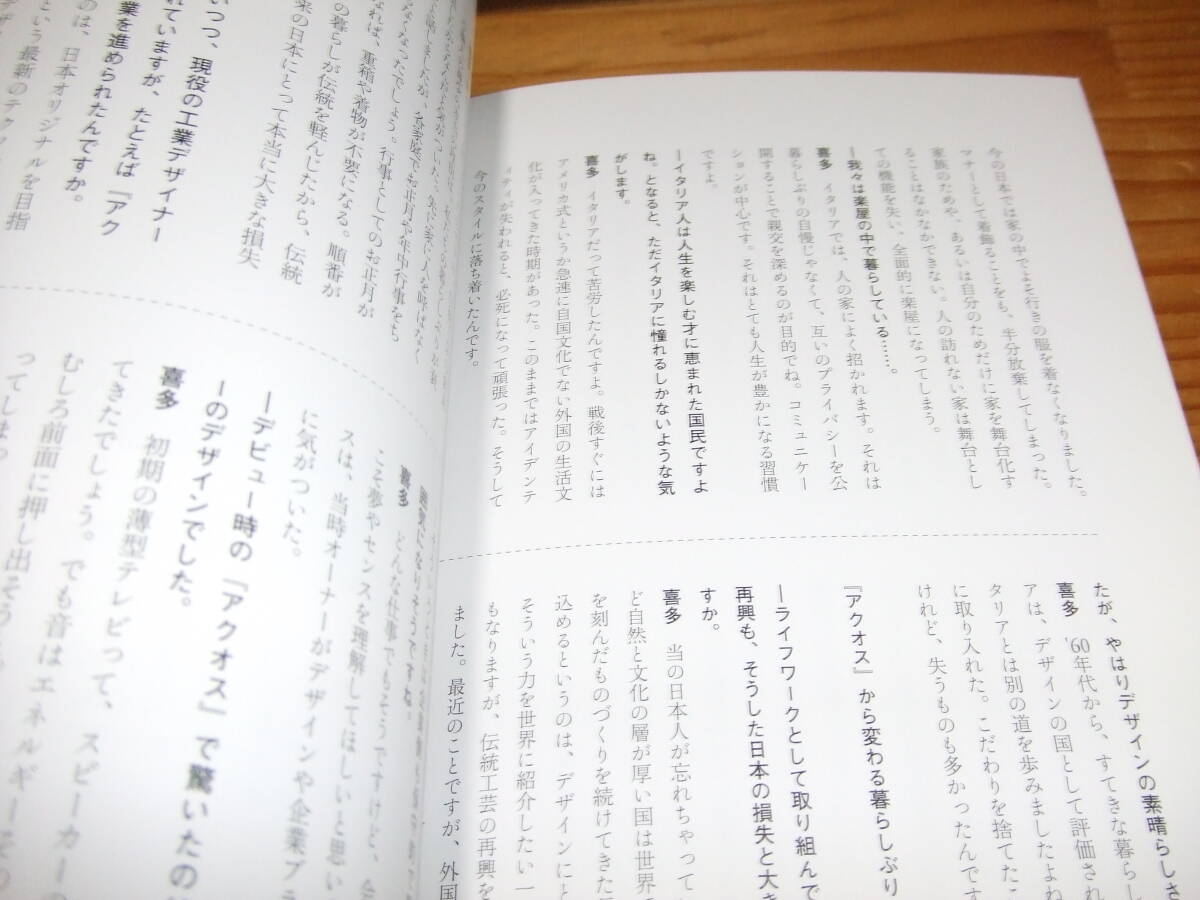 今の日本では家の中でよそ行きの服を着なくなりました。
マナーとして着飾ることをも、半分放棄してしまった。
家族のためや、あるいは自分のためだけに家を舞台化す
ることはなかなかできない。人の訪れない家は舞台とし
ての機能を失い、全面的に楽屋になってしまう。
―我々は楽屋の中で暮らしている……。
喜多　イタリアでは、人の家によく招かれます。それは
暮らしぶりの自慢じゃなくて、互いのプライバシーを公
開することで親交を深めるのが目的でね。コミュニケー
ションが中心です。それはとても人生が豊かになる習慣
ですよ。
―イタリア人は人生を楽しむ才に恵まれた国民ですよ
ね。となると、ただイタリアに憧れるしかないような気
がします。
喜多　イタリアだって苦労したんですよ。戦後すぐには
アメリカ式というか急速に自国文化でない外国の生活文
化が入ってきた時期があった。このままではアイデンテ
ィティが失われると、必死になって頑張った。そうして
今のスタイルに落ち着いたんです。
たが、やはりデザインの素晴らしさ
喜多　'60年代から、すてきな暮らし
アは、デザインの国として評価され
タリアとは別の道を歩みましたよね
に取り入れた。こだわりを捨てたこ
けれど、失うものも多かったんです
『アクオス』から変わる暮らしぶり
―ライフワークとして取り組んで
再興も、そうした日本の損失と大き
すか。
喜多　当の日本人が忘れちゃって
ど自然と文化の層が厚い国は世界
を刻んだものづくりを続けてきた
込めるというのは、デザインにと
そういう力を世界に紹介したい一
もなりますが、伝統工芸の再興を
ました。最近のことですが、外国
なくなったでしょう。行事としてのお正月が
なれば、重箱や着物が不要になる。順番が
の暮らしが伝統を軽んじたから、伝統
来の日本にとって本当に大きな損失
いつつ、現役の工業デザイナー
れていますが、たとえば『アク
業を進められたんですか。
のは、日本オリジナルを目指
という最新のテク
喜多　どんな仕事でもそうですけど、会
こそ夢やセンスを理解してほしいと思い
スは、当時オーナーがデザインや企業ブラ
に気がついた。
―デビュー時の『アクオス』で驚いたの
ーのデザインでした。
喜多　初期の薄型テレビって、スピーカーの
てきたでしょう。でも音はエネルギーその
むしろ前面に押し出そう
ってしまっ